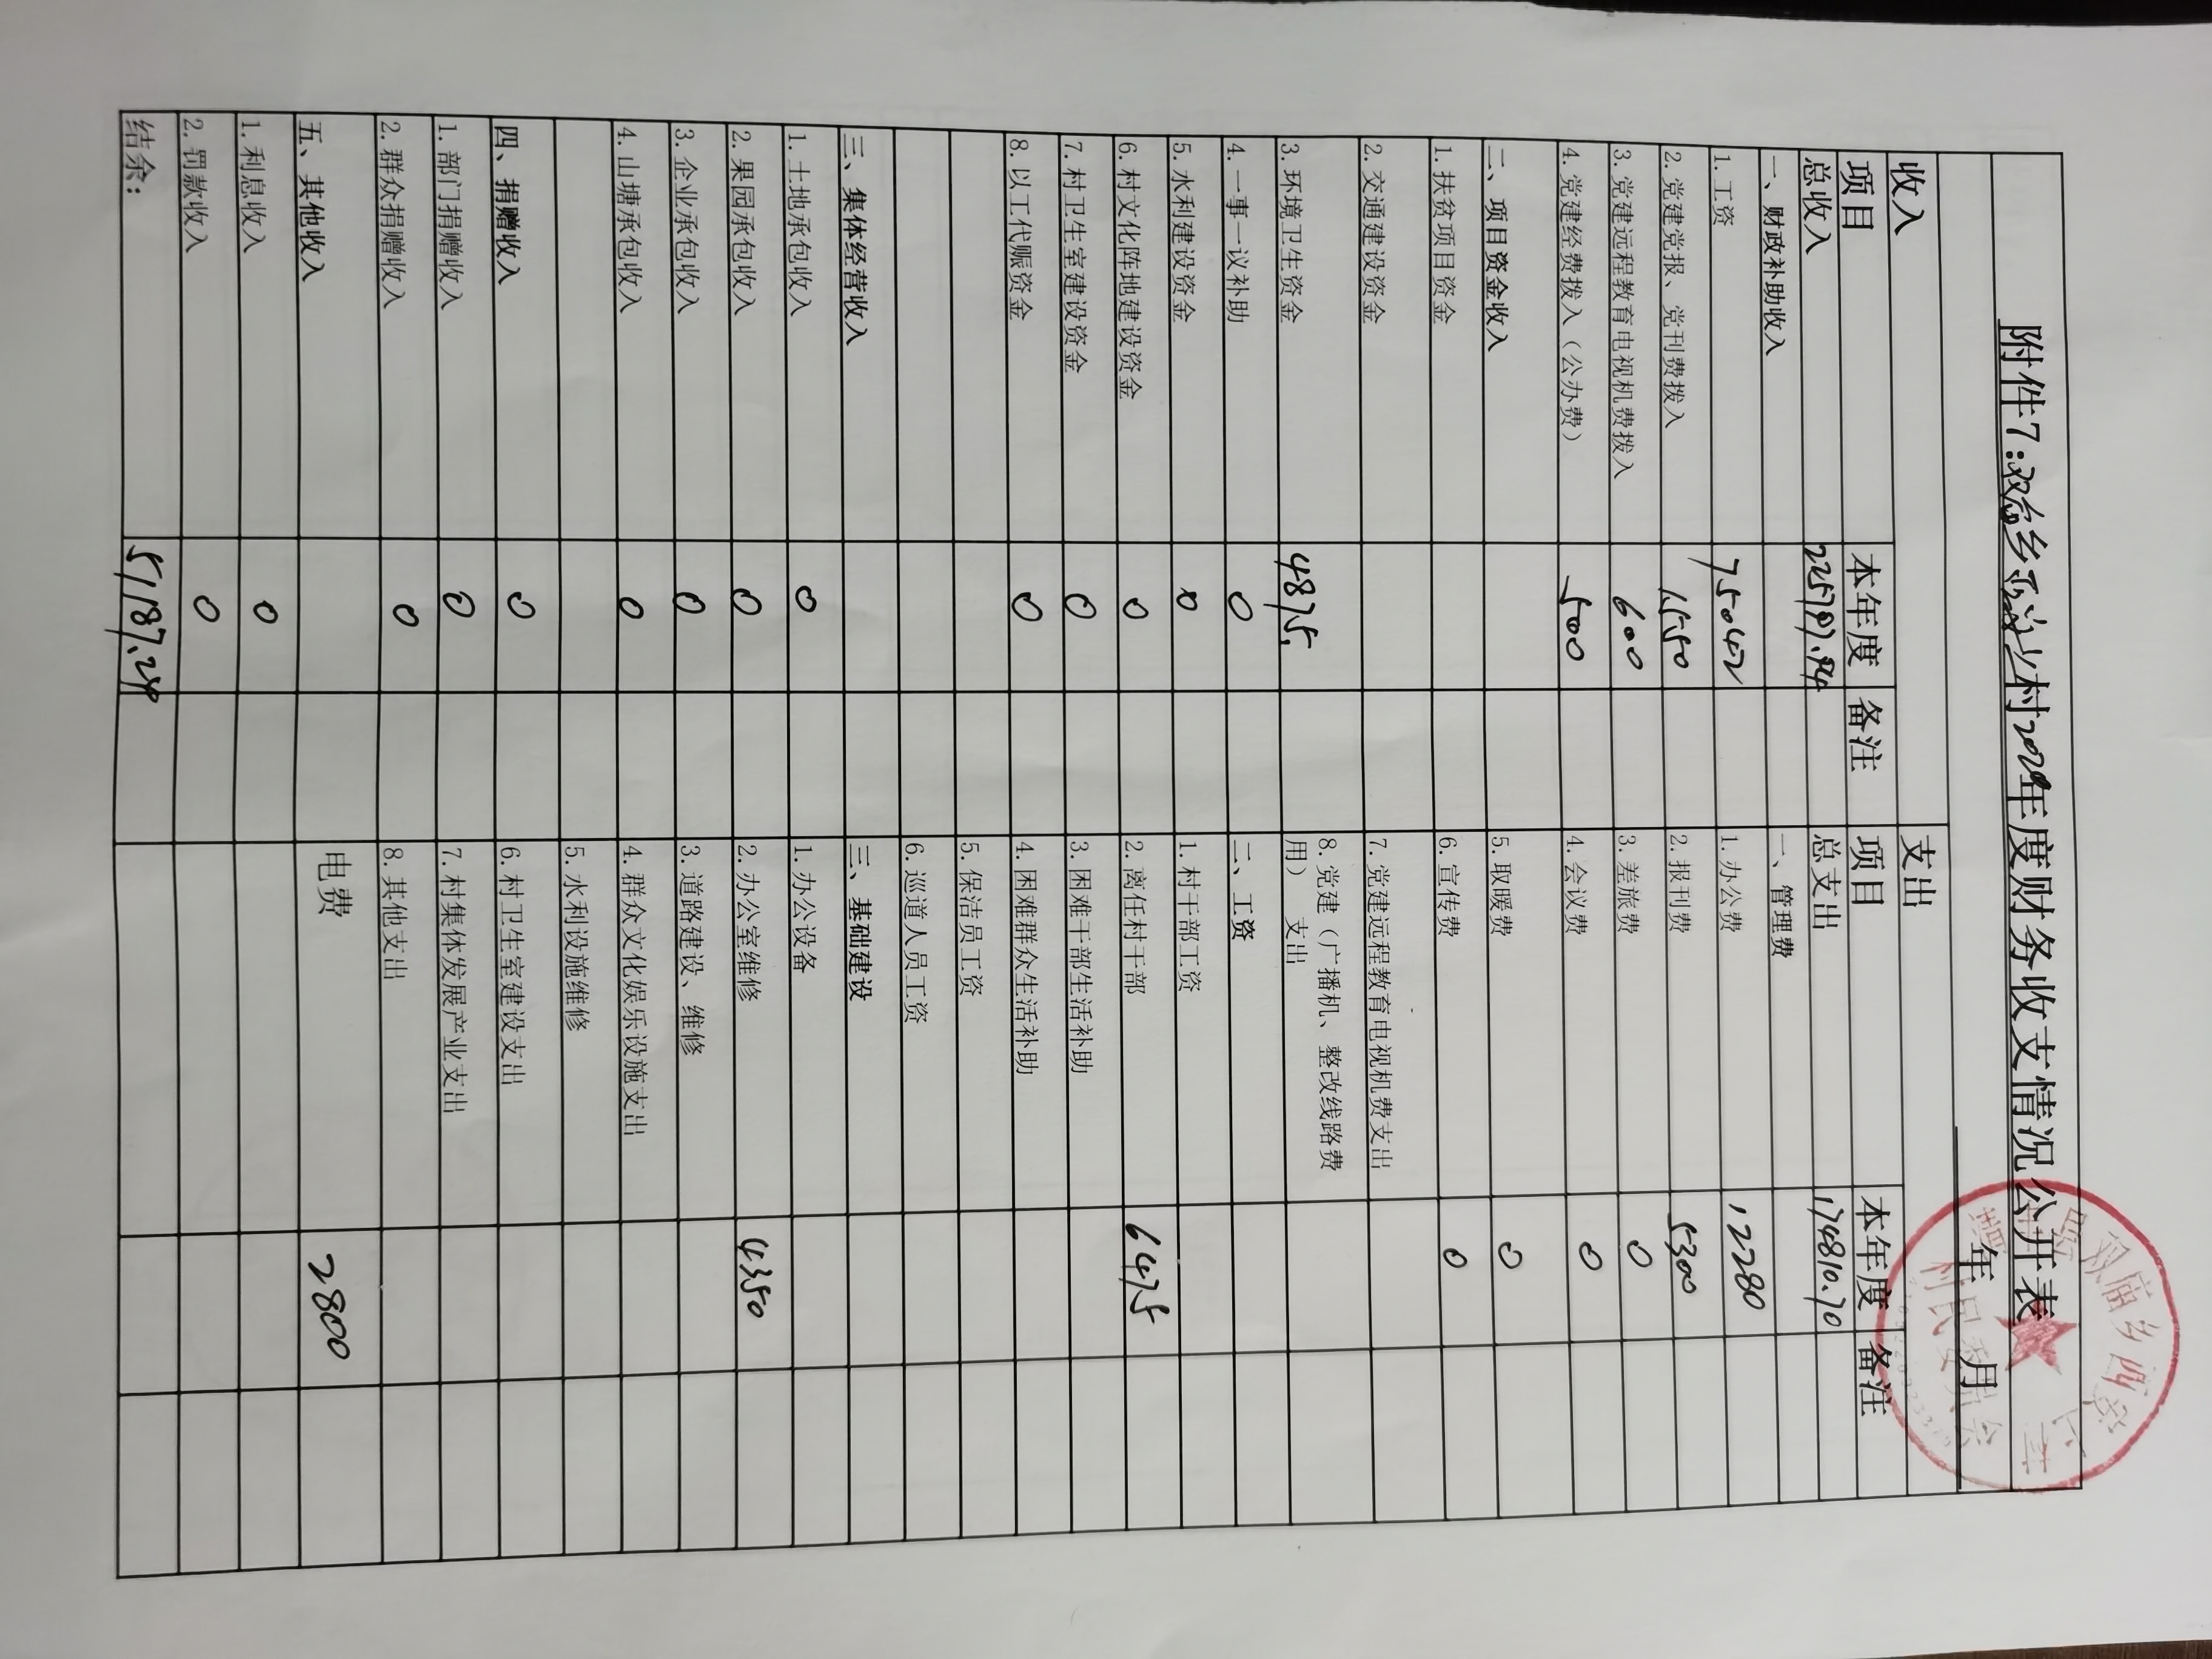 附件7:双庙乡村2020年度财务收支情况公开表
年 月
收入 支出
项目 本年度 备注 项目 本年度 备注
总收入 225797.94 总支出 174810.70
一、财政补助收入 一、管理费
1.工资 75042 1.办公费 12280
2.党建党报、党刊费拨入 1550 2.报刊费 5300
3.党建远程教育电视机费拨入 600 3.差旅费 0
4.党建经费拨入（公办费） 500 4.会议费 0
二、项目资金收入 5.取暖费 0
1.扶贫项目资金 6.宣传费 0
2.交通建设资金 7.党建远程教育电视机费支出
3.环境卫生资金 4875 8.党建（广播机、整改线路费用） 支出
4.一事一议补助 0 二、工资
5.水利建设资金 0 1.村干部工资
6.村文化阵地建设资金 0 2.离任村干部 6475
7.村卫生室建设资金 0 3.困难干部生活补助
8.以工代赈资金 0 4.困难群众生活补助
5.保洁员工资
6.巡道人员工资
三、集体经营收入 三、基础建设
1.土地承包收入 0 1.办公设备
2.果园承包收入 0 2.办公室维修 4350
3.企业承包收入 0 3.道路建设、维修
4.山塘承包收入 0 4.群众文化娱乐设施支出
5.水利设施维修
四、捐赠收入 0 6.村卫生室建设支出
1.部门捐赠收入 0 7.村集体发展产业支出
2.群众捐赠收入 0 8.其他支出
五、其他收入 电费 2800
1.利息收入 0
2.罚款收入 0
结余: 51187.24
双庙乡
村民委员会